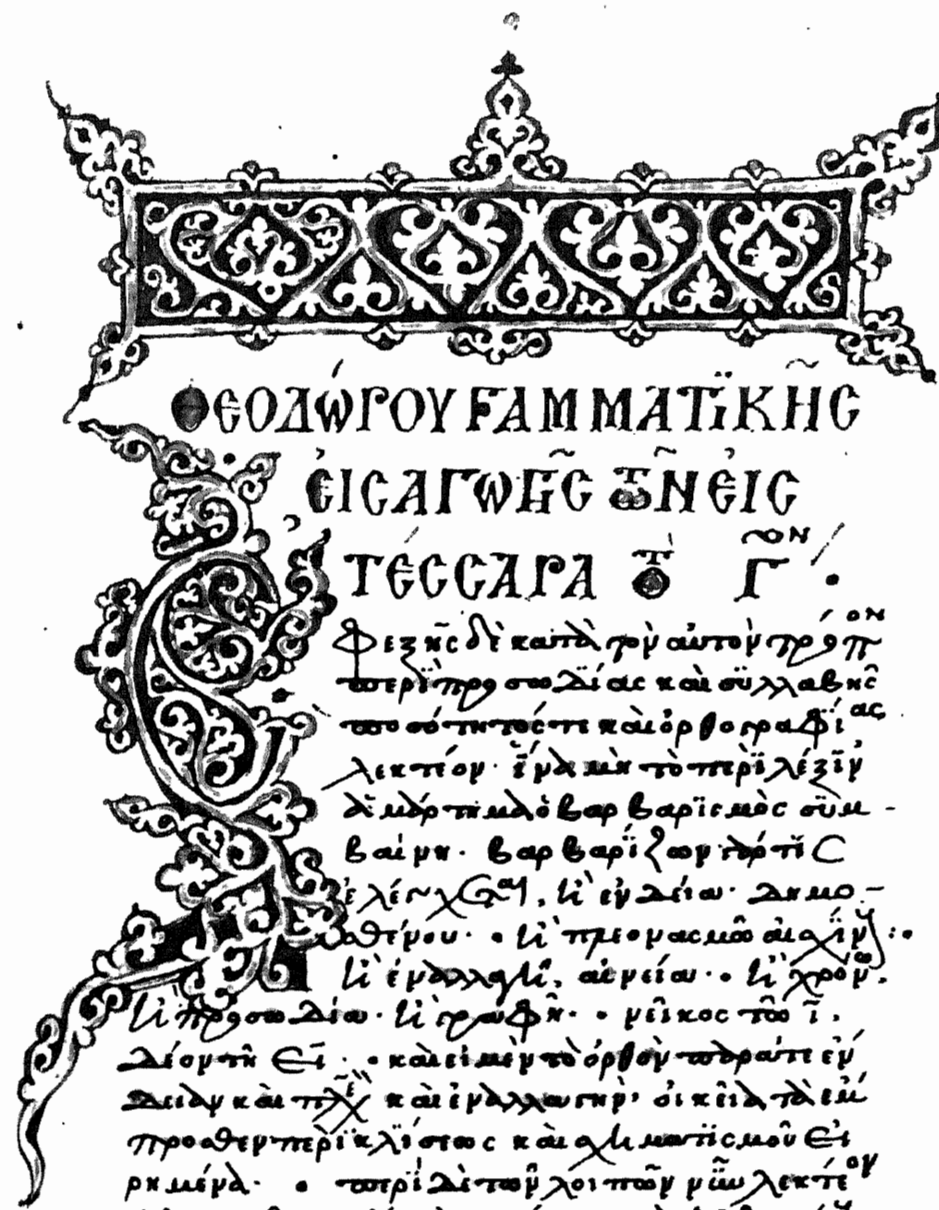 ΘΕΟΔΏΡΟΥ ΓΡΑΜΜΑΤΙΚΗ͂C
ἘΙCΑΓΩΓΗ͂C ΤΩ͂Ν ἘΙC
ΤΈCCΑΡΑ ΤῸ Γ͂ΟΝ.
Ἐφεξῆς δὲ κατὰ τὸν αὐτὸν τρόπον
περὶ προσωδίας καὶ συλλαβῆς
ποσότητός τε καὶ ὀρθογραφίας
λεκτέον· ἵνα μὴ τὸ περὶ λέξιν
ἁμάρτημα ὁ βαρβαρισμὸς συμ-
βαίνη. βαρβαρίζων γάρ τις
ἐλέγχεται, ἢ ἐνδείω· Δημο-
σθένου. ἢ πλεονασμῶ αἰσχίνην:
ἢ ἐναλλαγῆ, αἰνείω. ἢ χρόνω.
ἢ προσωδίω. ἢ γραφῆ. νεῖκος τῶ ῑ.
δέον τῆ ει. καὶ εἰ μὲν τὸ ὀρθὸν παρά τε ἔν
δειαν καὶ καὶ ἐναλλαγὴν, οἰκεῖα τὰ ἔμ
προσθεν περὶ κλίσεως καὶ σχηματισμοῦ εἰ
ρημένα. περὶ δὲ τῶν λοιπῶν νῦν λεκτέον